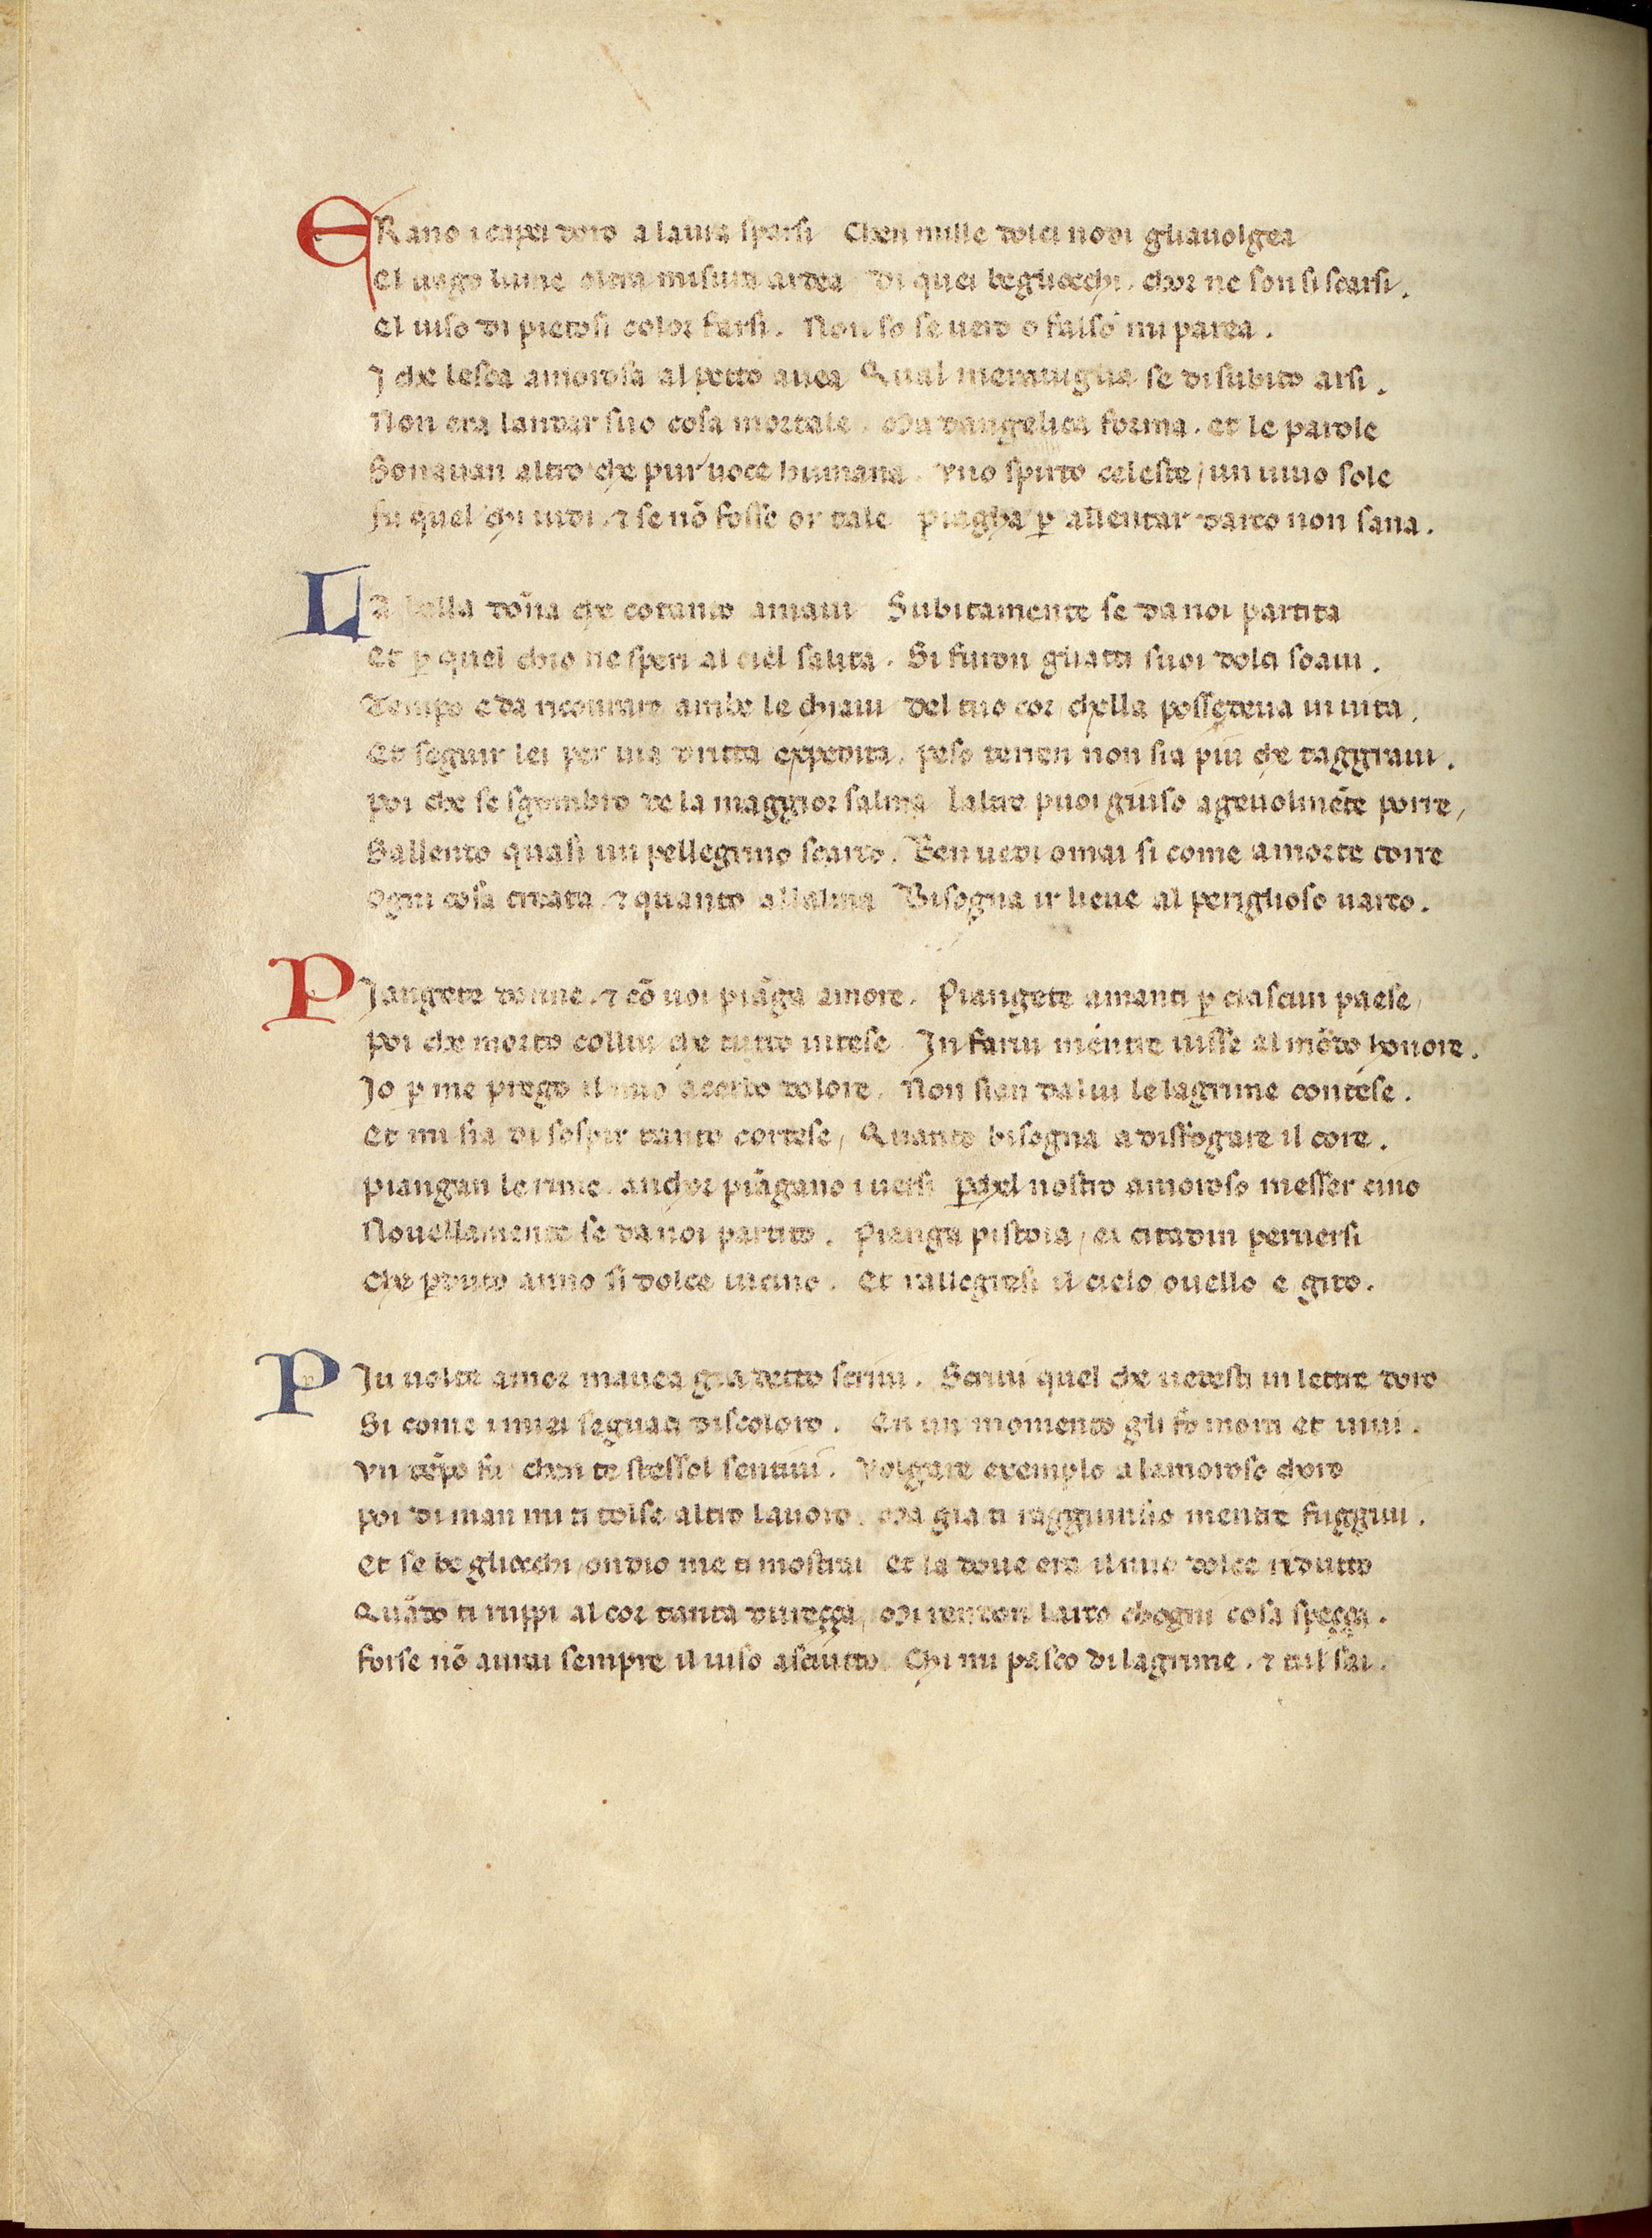 ERano i capei doro a laura sparsi Chen mille dolci nodi gliauolgea
El uago lume oltra misura ardea Di quei begliocchi. chor ne son si scarsi.
El uiso di pietosi color farsi. Non so se uero o falso mi parea.
I che lesca amorosa al petto auea Qual merauiglia se disubito arsi.
Non era landar suo cosa mortale. Ma dangelica forma. et le parole
Sonauan altro che pur uoce humana. Vno spirto celeste / un uiuo sole
fu quel chi uidi. ⁊ se nõ fosse or tale piagha ꝑ allentar darco non sana.
LA bella dõna che cotanto amaui Subitamente se da noi partita
Et ꝑ quel chio ne speri al ciel salita. Si furon gliatti suoi dolci soaui.
Tempo e da ricourare ambe le chiaui Del tuo cor chella possedeua in uita.
Et seguir lei per uia dritta expedita. peso terren non sia piu che taggraui.
poi che se sgombro de la maggior salma laltre puoi giuso ageuolmẽte porre /
Sallendo quasi un pellegrino scarco. Ben uedi omai si come a morte corre
Ogni cosa creata. ⁊ quanto allalma Bisogna ir lieue al periglioso uarco.
PIangete donne. ⁊ cõ uoi piãga amore. Piangete amanti ꝑ ciascun paese /
poi che morto collui che tutto intese In farui mentre uisse al mõdo honore.
Io ꝑ me prego il mio acerbo dolore. Non sian dalui le lagrime contese.
Et mi sia di sospir tanto cortese / Quanto bisogna a disfogare il core.
piangan le rime. anchor piãgano i uersi ꝑchel nostro amoroso messer cino
Nouellamente se da noi partito. Pianga pistoia / ei citadin peruersi
Che ꝑduto anno si dolce uicino. Et rallegresi il cielo ouello e gito.
PIu uolte amor mauea gia detto scriui. Scriui quel che uedesti in lettre doro
Si come i miei seguaci discoloro. En un momento gli fo morti et uiui.
Vn tẽpo fu chen te stessol sentiui. Volgare exemplo a lamoroso choro
poi di man mi ti tolse altro lauoro. Ma gia ti raggiunsio mentre fuggiui.
Et se begliocchi / ondio me ti mostrai Et la doue era il mio dolce ridutto
Quãdo ti ruppi al cor tanta dureçça / Mi rendon larco chogni cosa speçça.
forse nõ aurai sempre il uiso asciutto. Chi mi pasco di lagrime. ⁊ tul sai.